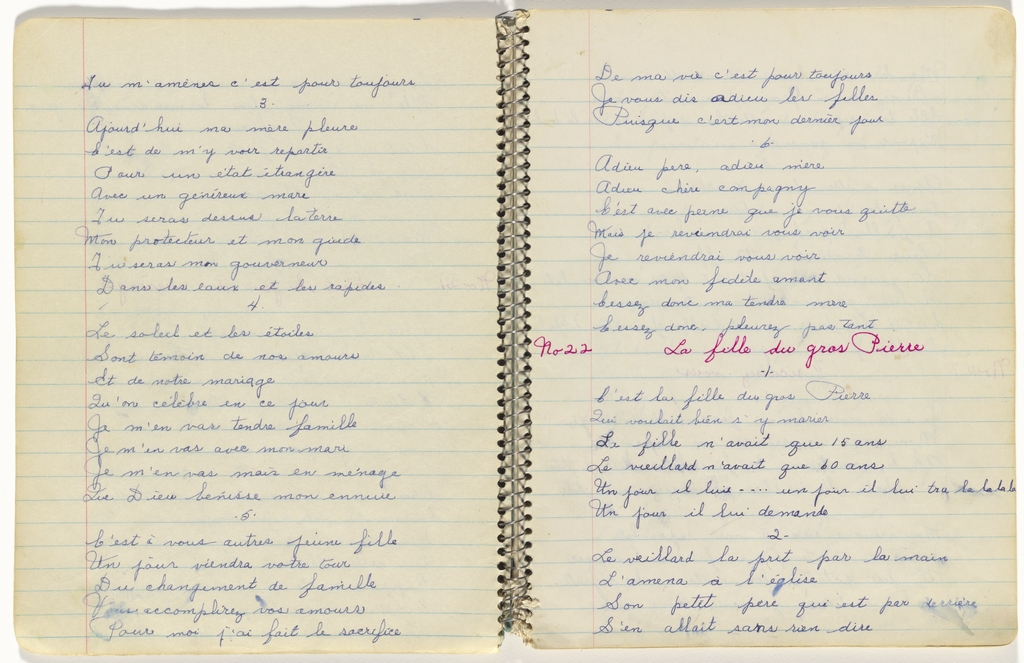 Tu m'amènes c'est pour toujours
3.
Ajourd'hui ma mère pleure
C'est de m'y voir repartir
Pour un état étrangère
Avec un généreux mari
Tu seras dessus la terre
Mon protecteur et mon guide
Tu seras mon gouverneur
Dans les eaux et les rapides.
4.
Le soleil et les étoiles
Sont témoin de nos amours
Et de notre mariage
Qu'on célèbre en ce jour
Je m'en vas tendre famille
Je m'en vas avec mon mari
Je m'en vas mais en ménage
Que Dieu bénisse mon ennuie
.5.
C'est à vous autres jeune fille
Un jour viendra votre tour
Du changement de famille
Vous accomplirez vos amours
Pour moi j'ai fait le sacrifice
De ma vie c'est pour toujours
Je vous dis adieu les filles
Puisque c'est mon dernièr jour
6.
Adieu père, adieu mère
Adieu chère compagny
C'est avec peine que je vous quitte
Mais je reviendrai vous voir
Je reviendrai vous voir
Avec mon fidèle amant
Cessez donc ma tendre mère
Cessez donc, pleurez pas tant.
No 22 La fille du gros Pierre
-1-
C'est la fille du gros Pierre
Qui voulait bien s'y marier
La fille n'avait que 15 ans
Le vieillard n'avait que 60 ans
Un jour il lui .... un jour il lui tra la la la la
Un jour il lui demande
2-
Le veillard la prit par la main
L'amena à l'église
Son petit père qui est par derrière
S'en allait sans rien dire